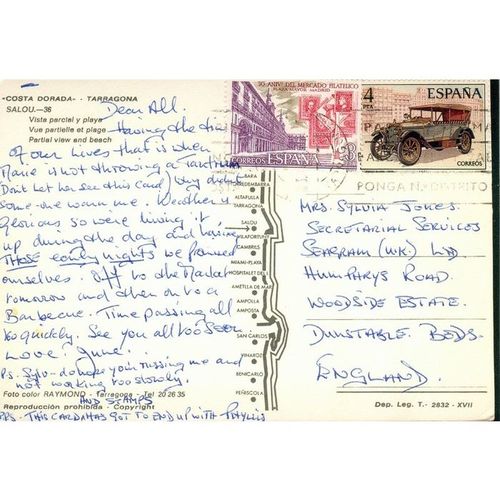 «COSTA DORADA» - TARRAGONA
SALOU.-36
Vista parcial y playa
Vue partielle et plage
Partial view and beach
Dear All.
Having the time
of our lives that is when
Marie is not throwing a tantrum
Don't let her see this card) Why didn't
some-one warn me. Weather is
glorious so were living it
up during the day and having
THOSE early nights we promised
ourselves. Off to the Market
tomorrow and then on to a
Barbecue. Time passing all
too quickly. See you all too soon
Love! June!
P.S. Sylv - do hope your missing me and
not working too slowly.
Foto color RAYMOND - Tarragona - Tel 20 26 35
Reproducción prohibida - Copyright
AND STAMPS
PPS - THIS CARD HAS GOT TO END UP WITH PHYLLIS
50 ANIV. DEL MERCADO FILATELICO
PLAZA MAYOR MADRID
CORREOS ESPAÑA
4
PTA
ESPAÑA
CORREOS
PONGA N. DISTRITO
BARA
TORREDEMBARRA
ALTAFULLA
TARRAGONA
SALOU
MONTFORT
CAMBRILS
MIAMI-PLAYA
HOSPITALET DEL I.
AMETLLA DE MAR
AMPOLLA
AMPOSTA
SAN CARLOS
VINAROZ
BENICARLO
PEÑISCOLA
MRS SYLVIA JONES.
SECRETARIAL SERVICES
SEAGRAM (U.K.) LTD
HUMPHRYS ROAD.
WOODSIDE ESTATE.
DUNSTABLE. BEDS.
ENGLAND.
Dep. Leg. T. - 2832 - XVII